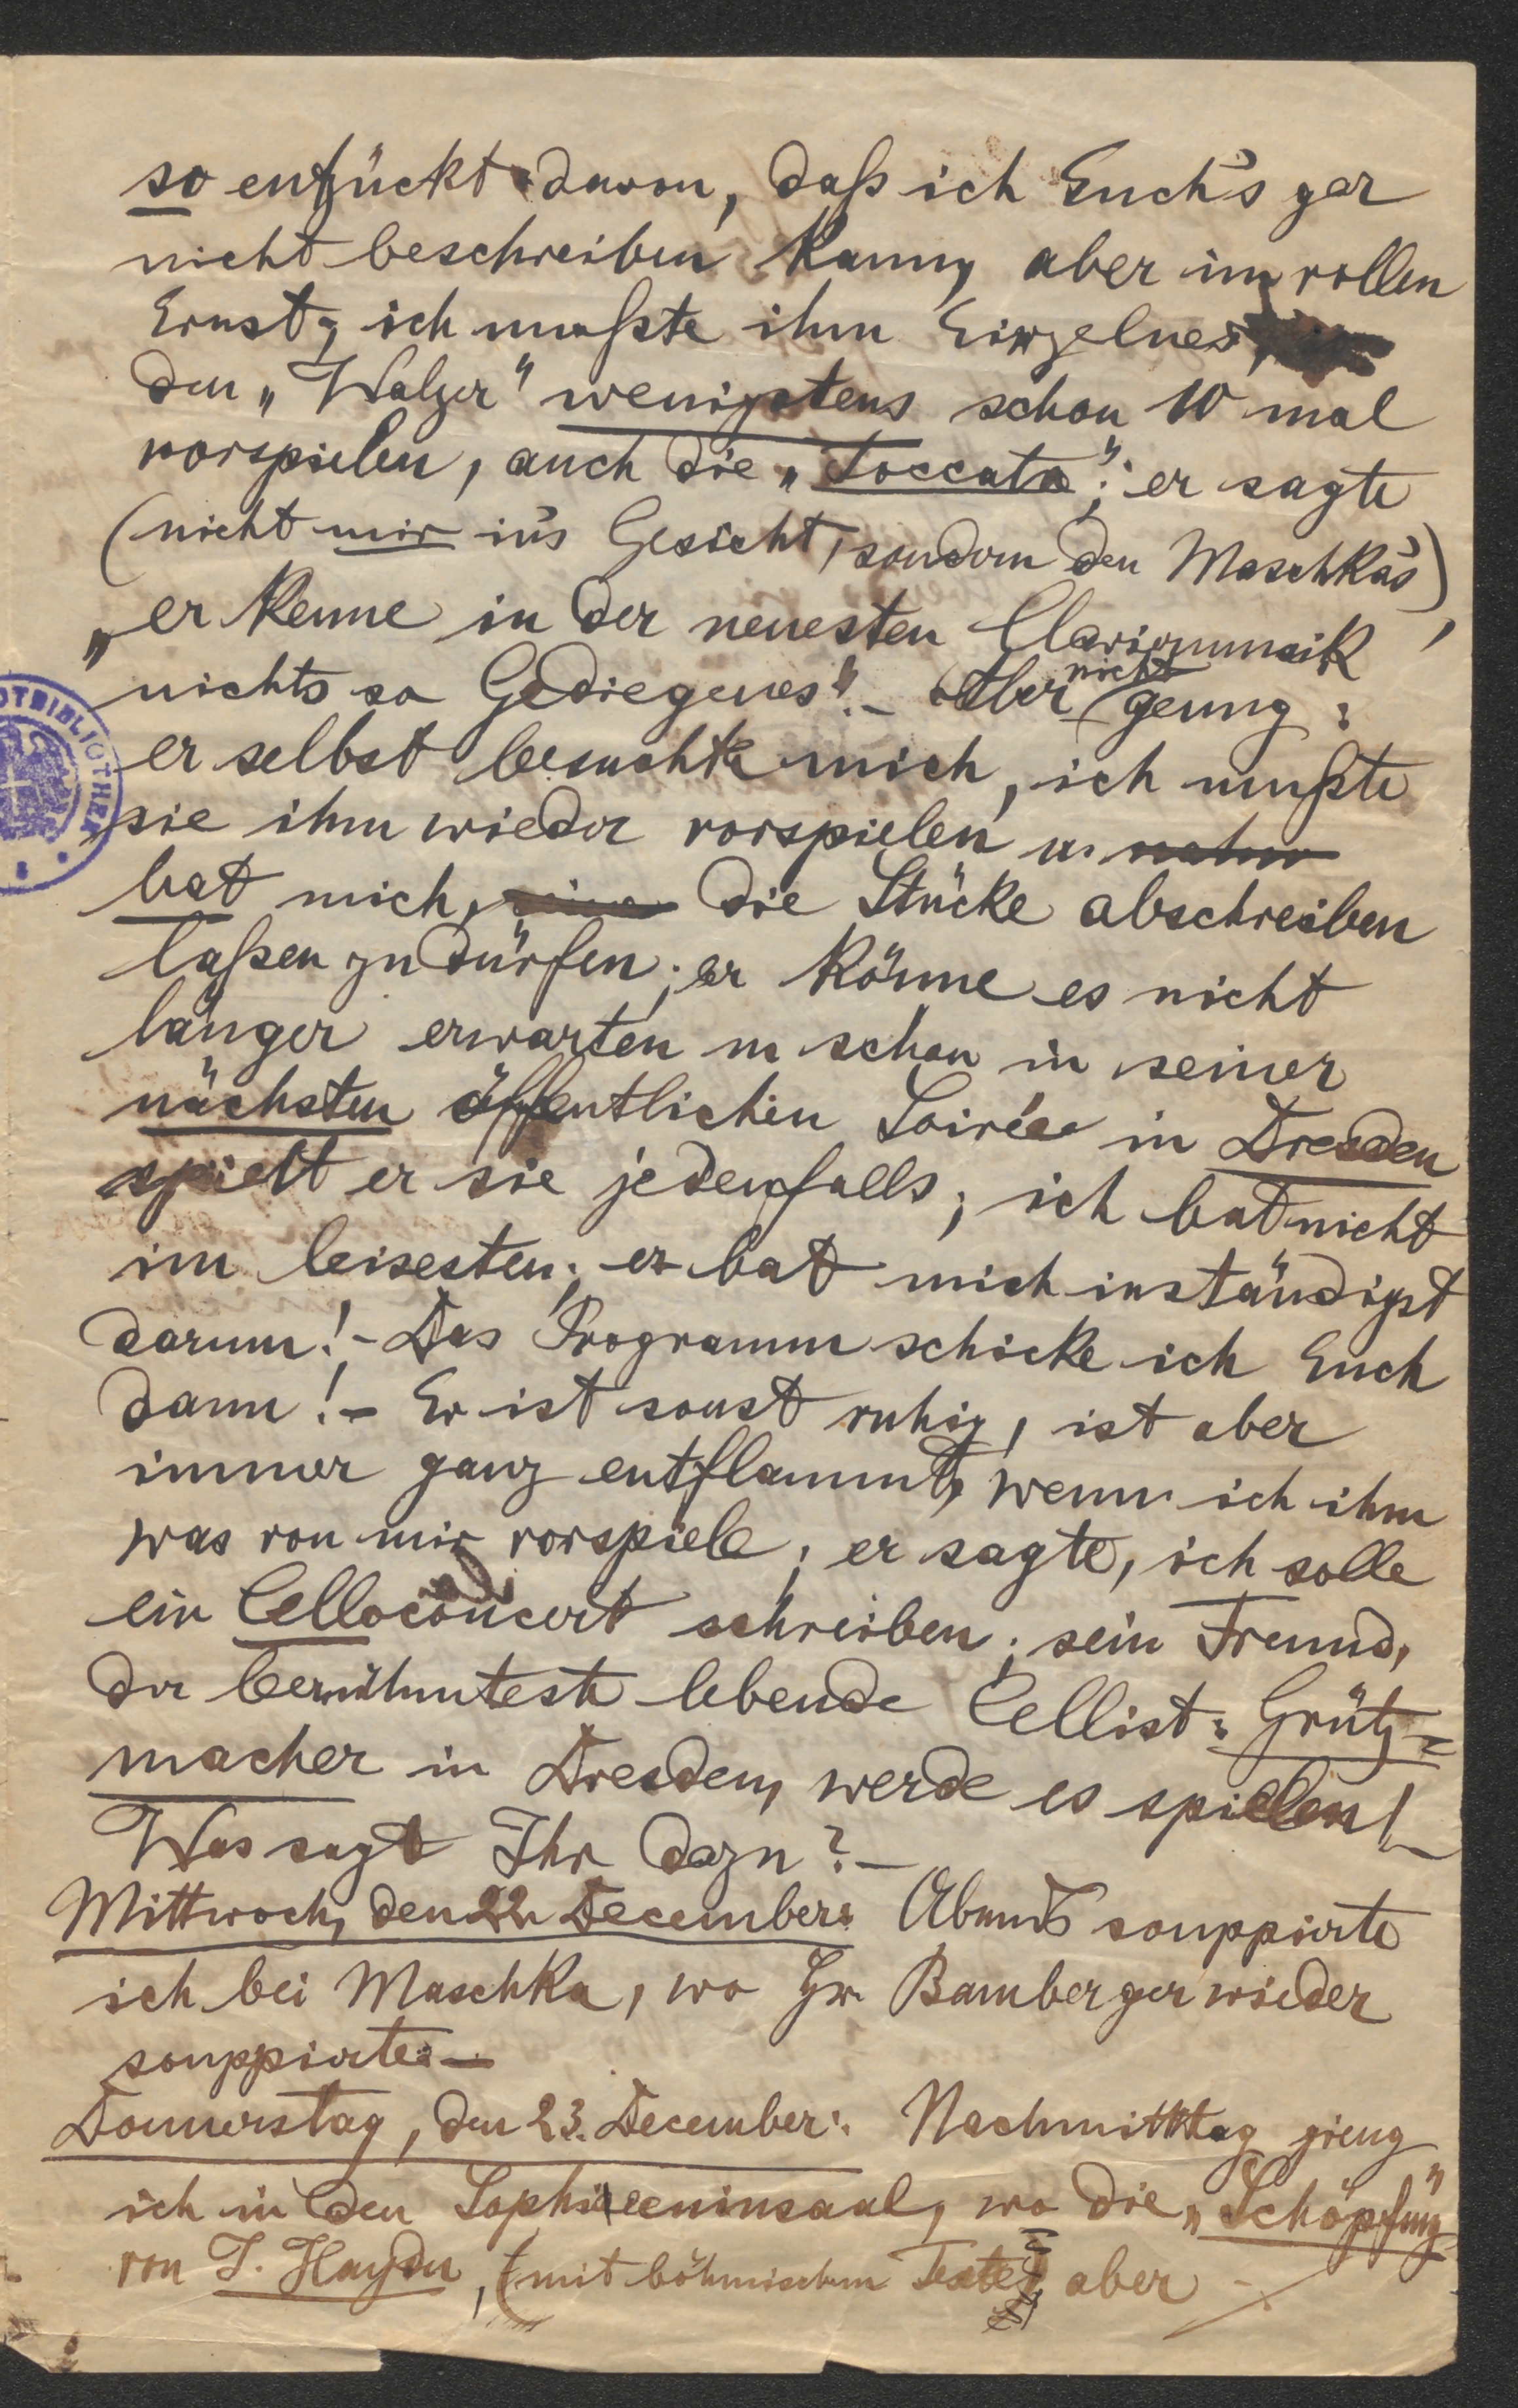 so entzückt davon, daß ich Euch's gar
nicht beschreiben kann, aber im vollen
Ernst; ich mußte ihm Einzelnes,
den „Walzer" wenigstens schon 10 mal
vorspielen, auch die „Toccata"; er sagte
(nicht mir in's Gesicht, sondern den Maschka's),
„er kenne in der neuesten Claviermusik
nichts so Gediegenes". – Aber nicht genug:
er selbst besuchte mich, ich mußte
sie ihm wieder vorspielen u. nahm
bat mich, eine die Stücke abschreiben
laßen zu dürfen; er könne es nicht
länger erwarten u schon in seiner
nächsten öffentlichen Soirée in Dresden
spielt er sie jedenfalls; ich bat nicht
im leisesten; er bat mich inständigst
darum! – Das Programm schicke ich Euch
dann! – Er ist sonst ruhig, ist aber
immer ganz entflammt, wenn ich ihm
was von mir vorspiele; er sagte, ich solle
ein Celloconcert schreiben; sein Freund,
der berühmteste lebende Cellist: Grütz=
macher in Dresden, werde es spielen! –
Was sagt Ihr dazu? –
Mittwoch, den 22. December: Abends souppierte
ich bei Maschka, wo Hr. Bamberger wieder
souppierte. –
Donnerstag, den 23. December: Nachmitttag gieng
ich in den Sophieeninsaal, wo die „Schöpfung"
von J. Haydn, (mit böhmischem Texte) aber –
STADTBIBLIOTHEK